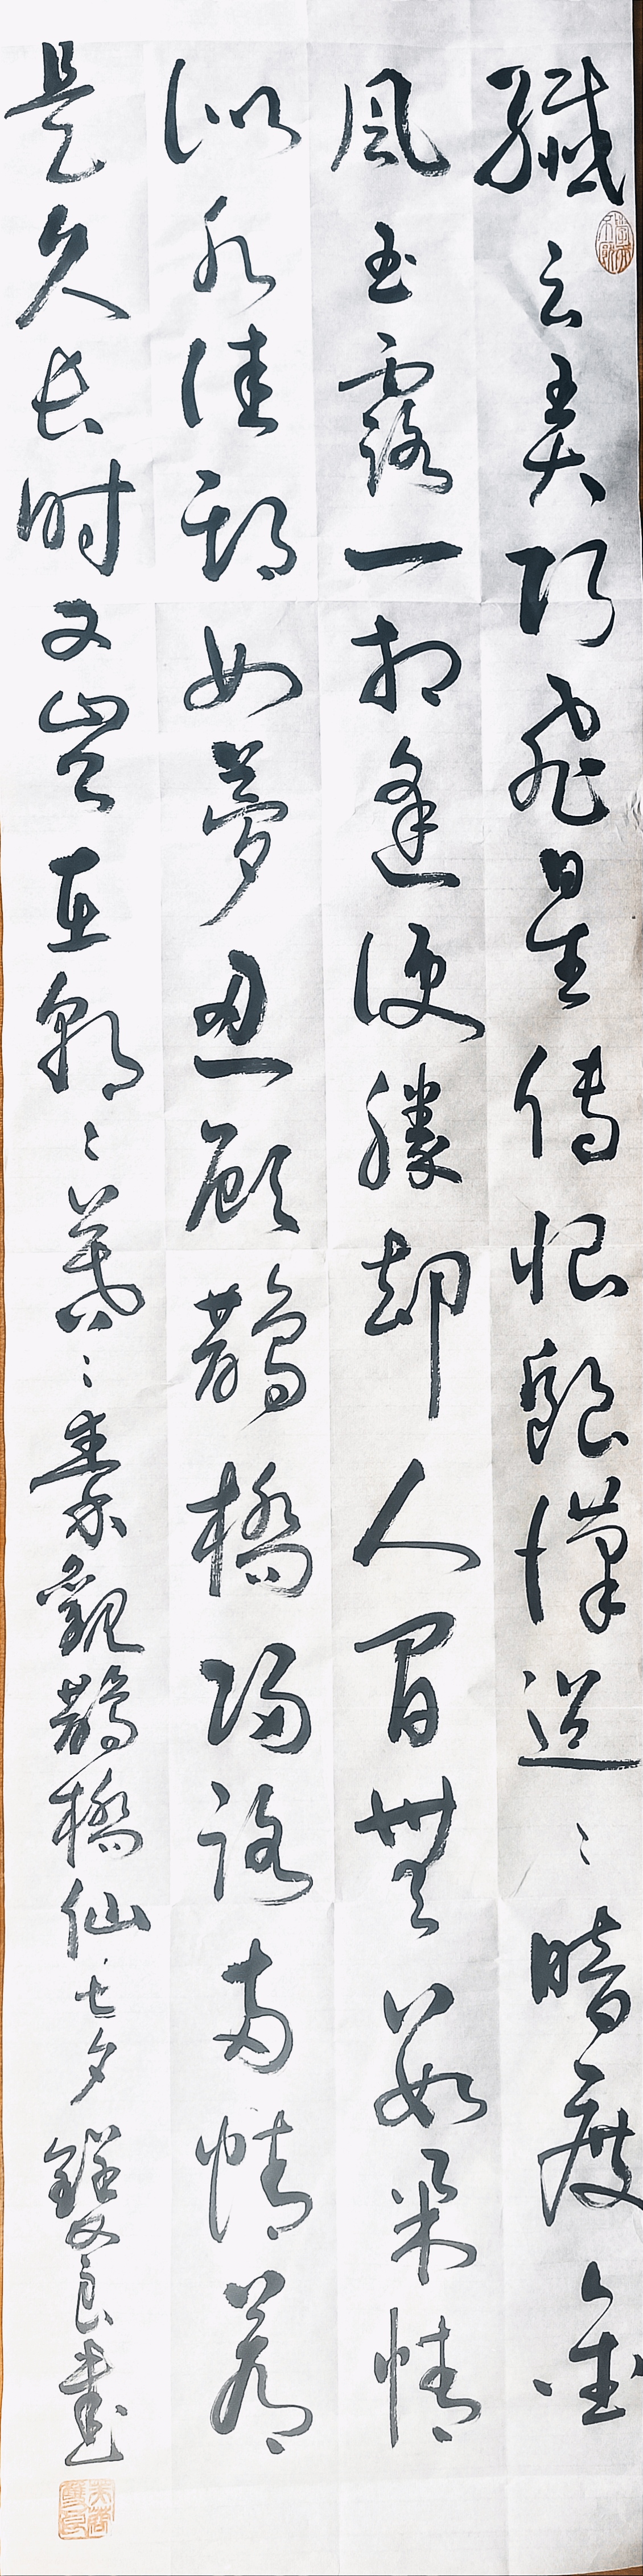 纖云弄巧飛星傳恨銀漢迢〻暗度金
風玉露一相逢便勝却人間無數柔情
似水佳期如夢忍顧鵲橋歸路兩情若
是久长时又豈在朝〻暮〻秦觀鵲橋仙·七夕 良書